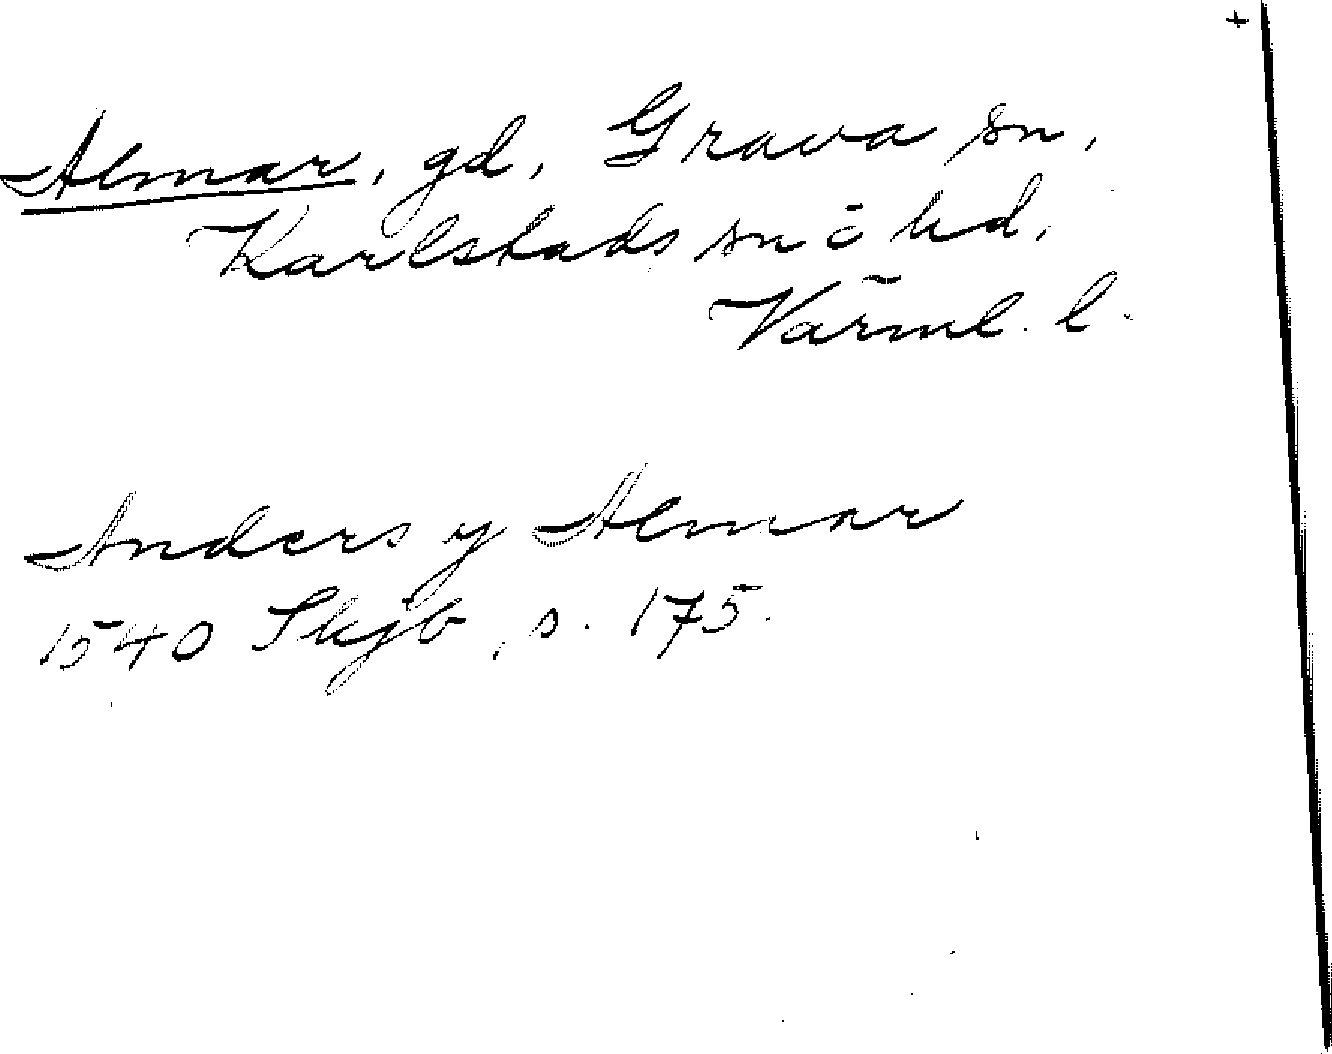 +
Almar, gd, Grava sn,
Karlstads sn o hd,
Värml. l.
Anders y Almar
1540 Skjb, s. 175.